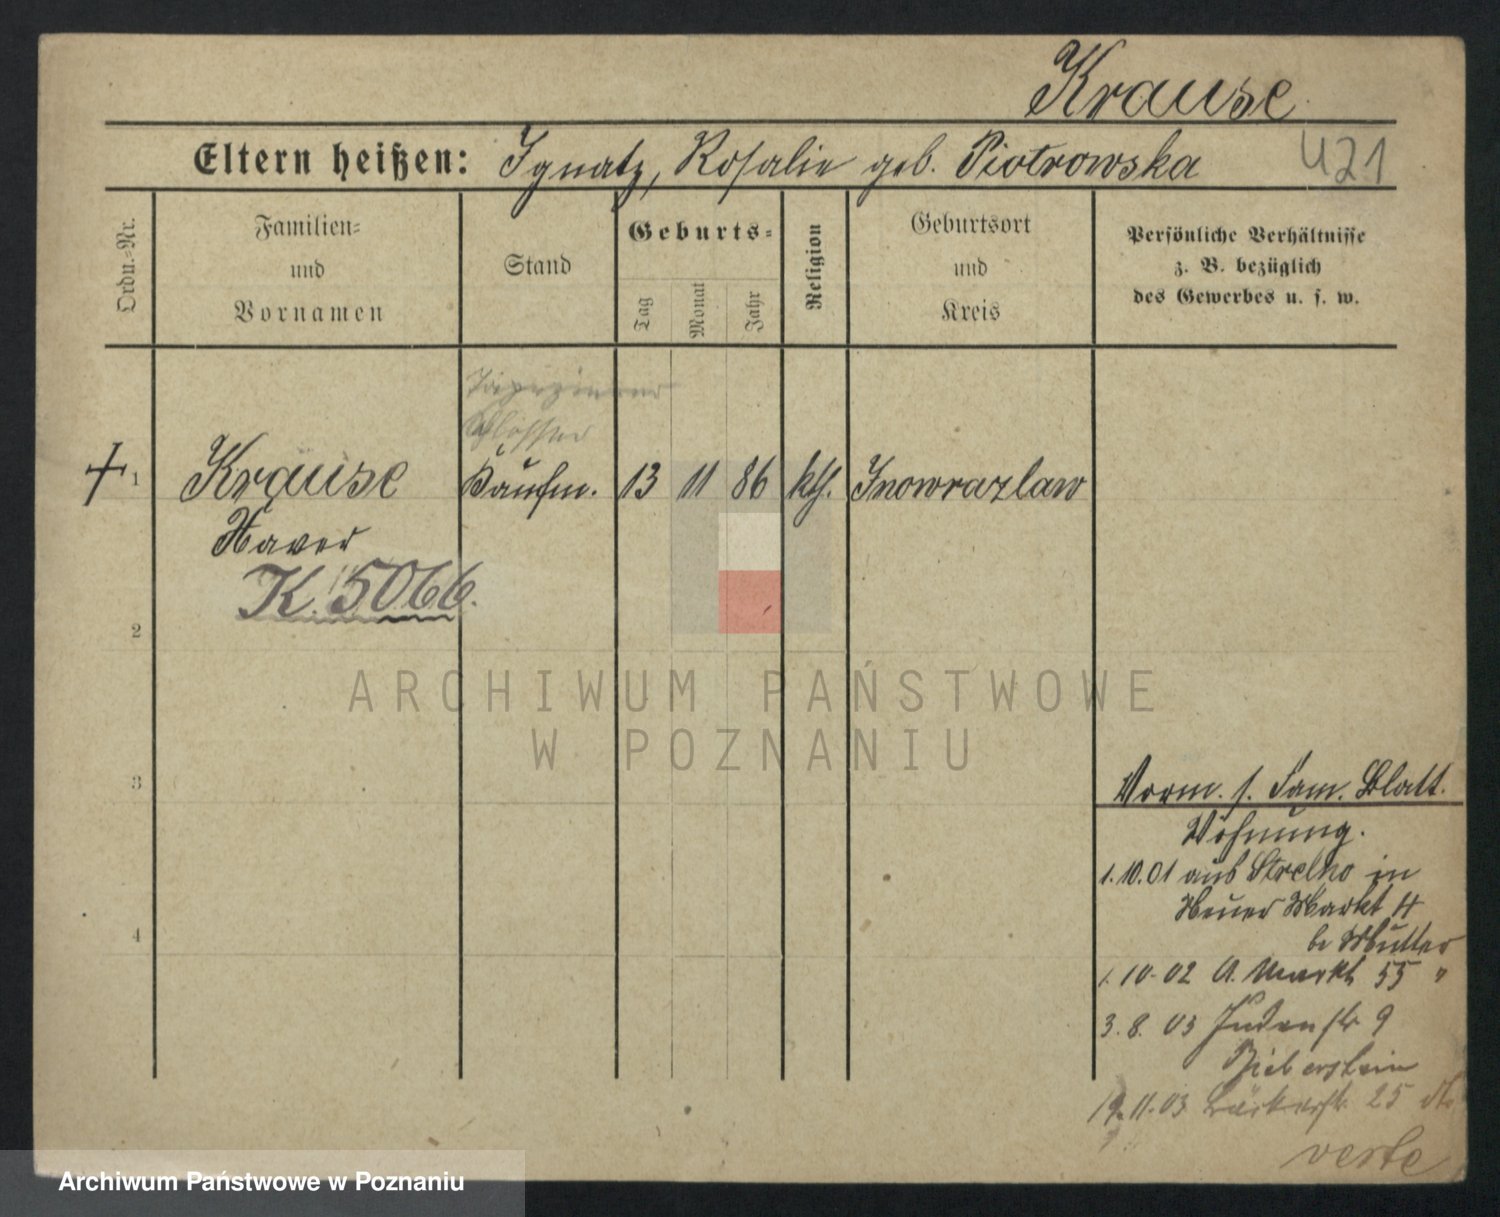 Krause
Eltern heißen: Ignatz, Rosalie geb. Piotrowska
421
Ordn.-Nr.
Familien-
und
Vornamen
Stand
Geburts-
Tag
Monat
Jahr
Religion
Geburtsort
und
Kreis
Persönliche Verhältnisse
z. B. bezüglich
des Gewerbes u. s. w.
Tapezierer
Schlosser
1 Krause Kaufm. 13 11 86 kth. Inowrazlaw
Xaver
K. 5066.
2
ARCHIWUM PAŃSTWOWE
W POZNANIU
3
Vorm. s. Fam. Blatt.
Wohnung.
1.10.01 aus Strelno in
Neuer Markt 4
4
b Mutter
1.10.02 A. Markt 55 "
3.8.03 Judenstr 9
Bieberstein
19.11.03 Bäckerstr 25
verte
Archiwum Państwowe w Poznaniu